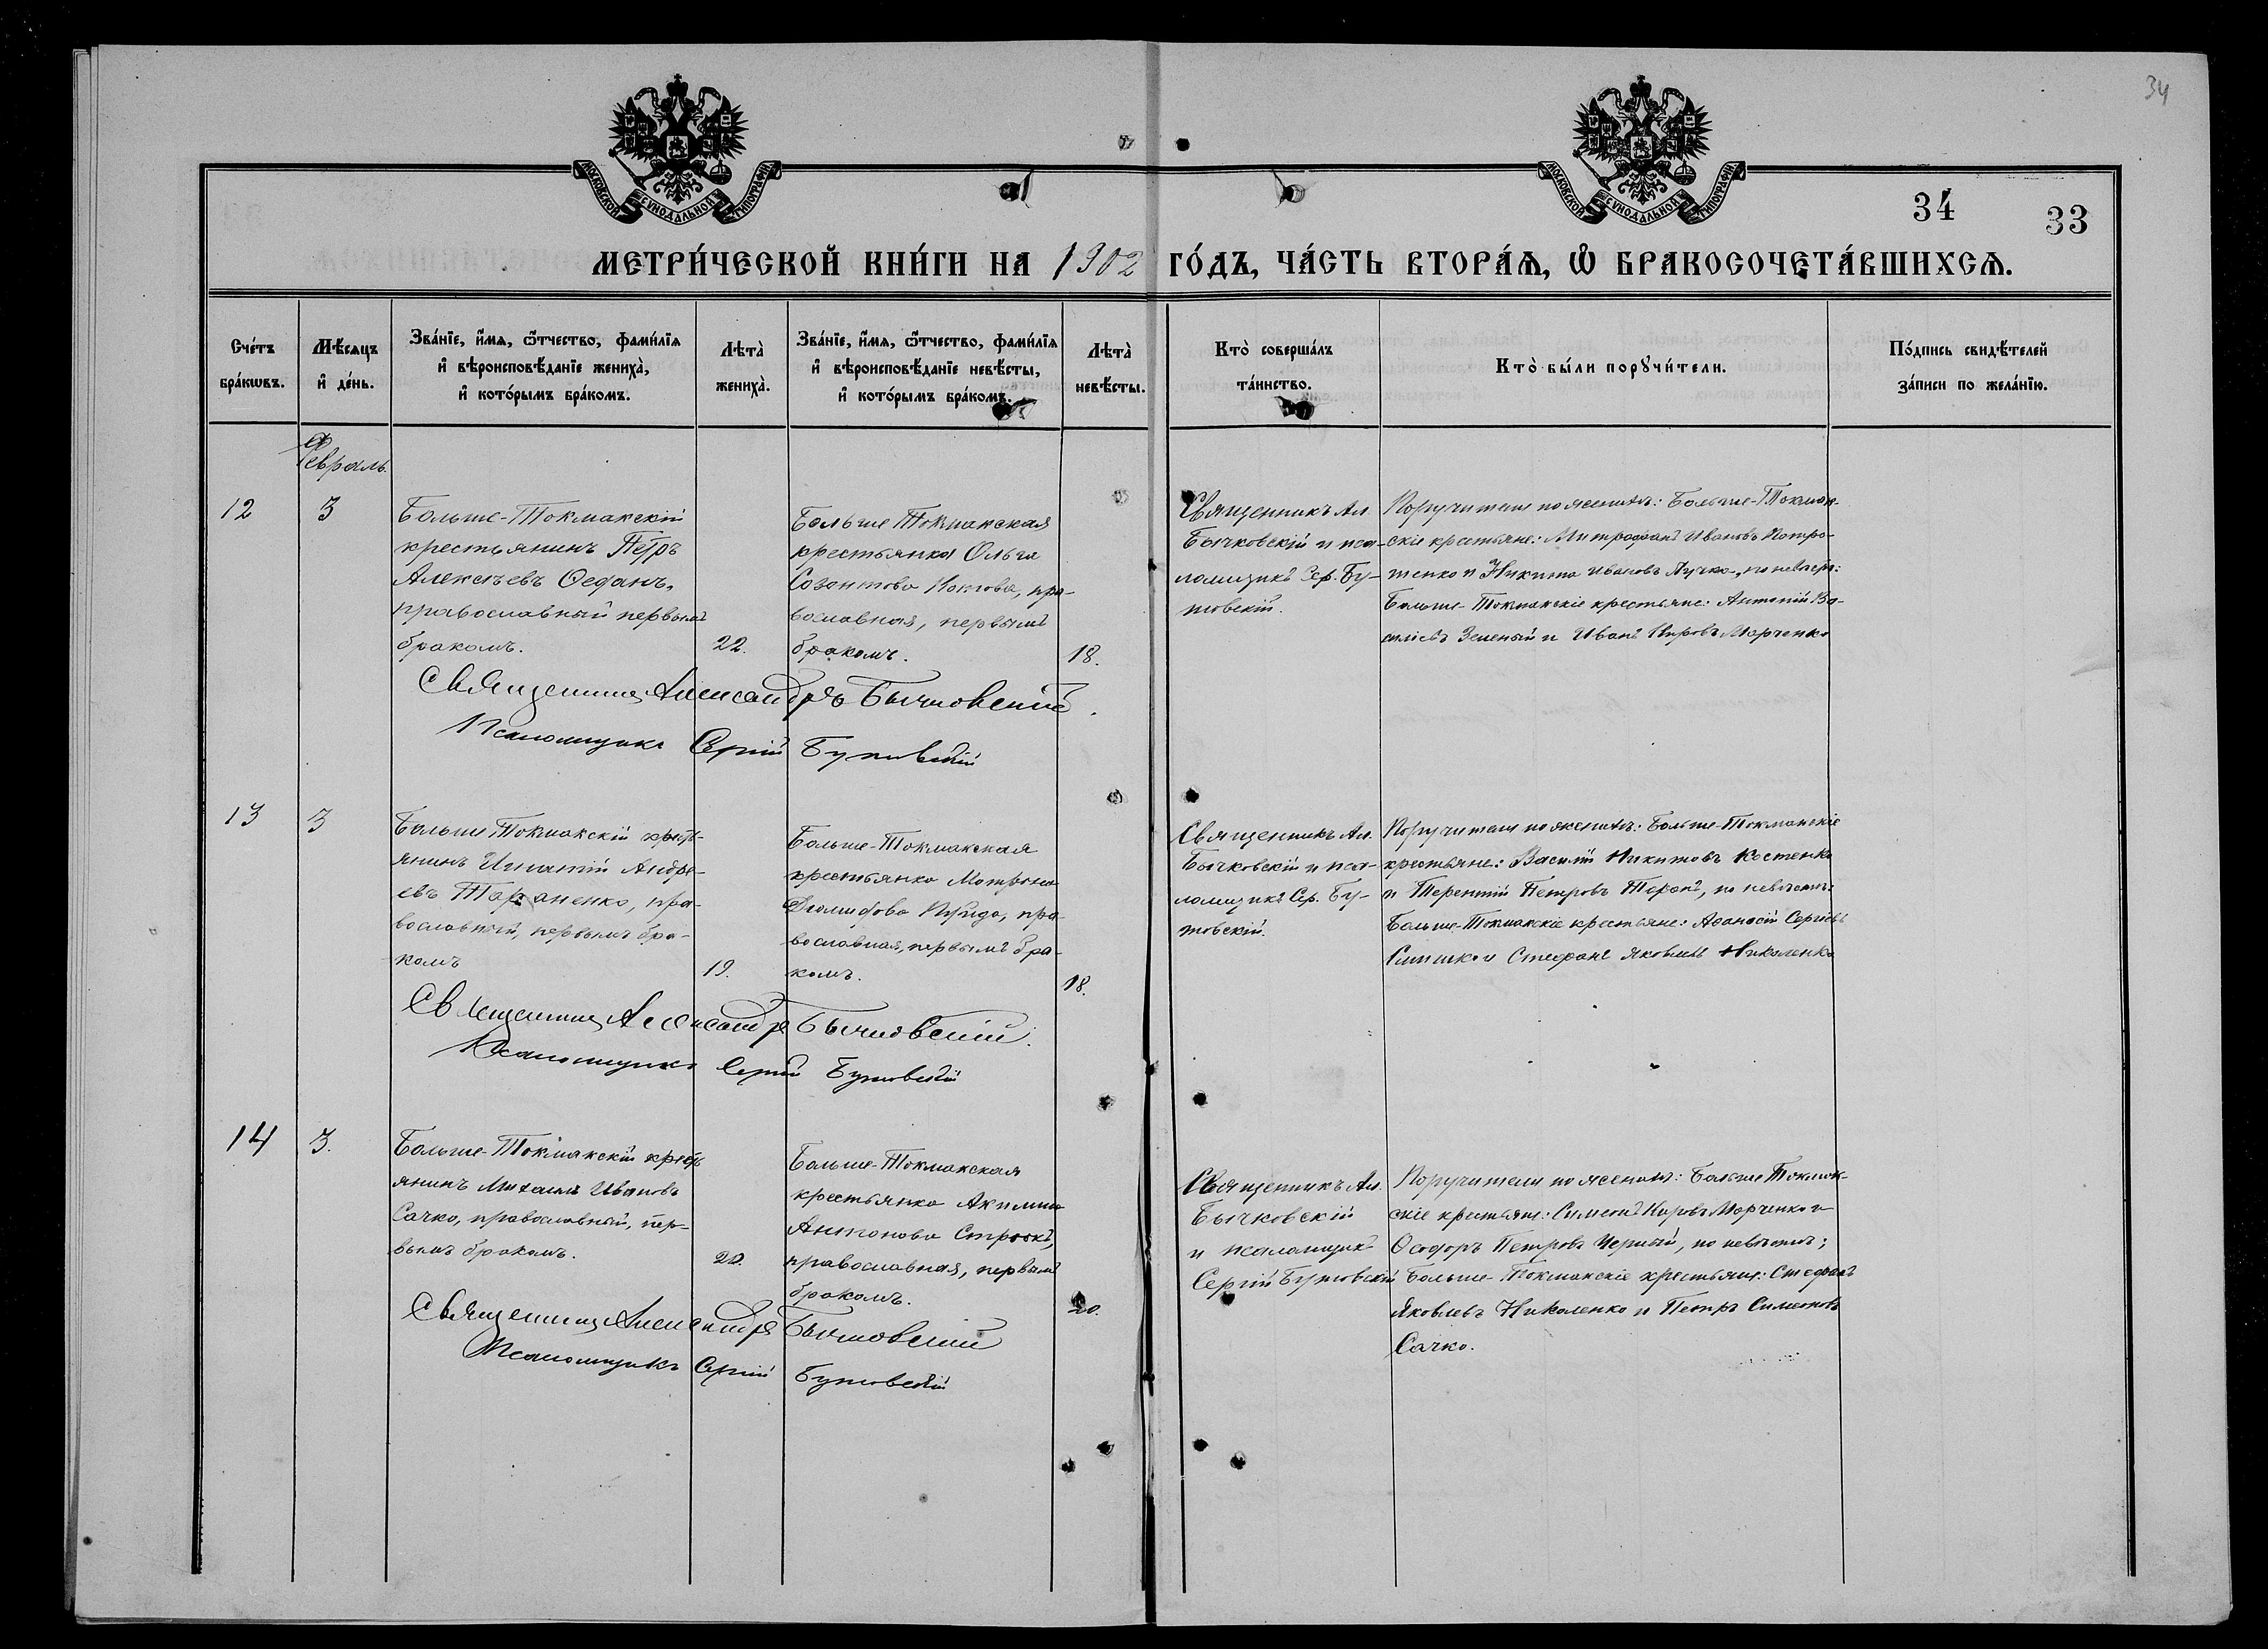 34
МОСКОВСКОЙ СѴНОДАЛЬНОЙ ТИПОГРАФІИ
МОСКОВСКОЙ СѴНОДАЛЬНОЙ ТИПОГРАФІИ
34 33
МЕТРИ́ЧЕСКОЙ КНИ́ГИ НА 1902 ГО́ДЪ, ЧА́СТЬ ВТОРА́Ѧ, Ѡ БРАКОСОЧЕТА́ВШИХСѦ.
Сче́тъ
бра́кѡвъ.
Мѣ́сяцъ
и҆ де́нь.
Зва́нїе, и҆́мѧ, ѻ҆́тчество, фамѝлїѧ
и҆ вѣроисповѣ́данїе жениха̀,
и҆ кото́рымъ бра́комъ.
Лѣта̀
жениха̀.
Зва́нїе, и҆́мѧ, ѻ҆́тчество, фамѝлїѧ
и҆ вѣроисповѣ́данїе невѣ́сты,
и҆ кото́рымъ бра́комъ.
Лѣта̀
невѣ́сты.
Кто̀ соверша́лъ
та́инство.
Кто̀ бы́ли порꙋчи́тели.
По́дпись свидѣ́телей
за́писи по жела́нїю.
Февраль.
12
3
Больше-Токмакскій
крестьянинъ Петръ
Алексѣевъ Ѳеданъ,
православный первымъ
бракомъ.
22.
Больше Токмакская
крестьянка Ольга
Созонтова, пра-
вославная, первымъ
бракомъ.
18.
Священникъ Ал.
Бычковскій и пса-
ломщикъ Сер. Бу-
товскій.
Поручители по женихѣ: Больше-Токмак-
скіе крестьяне: Митрофанъ Ивановъ
и Никита Ивановъ Лучко, по невѣстѣ:
Больше-Токмакскіе крестьяне: Антоній Ва-
силіевъ Зеленый и Иванъ Кировъ Марченко
Священникъ Александръ Бычковскій.
Псаломщикъ Сергій Бутовскій
13
3
Больше Токмакскій кресть-
янинъ Игнатій Андре-
евъ Тараненко, пра-
вославный, первымъ бра-
комъ
19.
Больше-Токмакская
крестьянка Матрона
Діомидова, пра-
вославная, первымъ бра-
комъ.
18.
Священникъ Ал.
Бычковскій и пса-
ломщикъ Сер. Бу-
товскій.
Поручители по женихѣ: Больше-Токмакскіе
крестьяне: Василій Никитовъ Костенко
и Терентій Петровъ Таранъ, по невѣстѣ:
Больше-Токмакскіе крестьяне: Аѳанасій Сергіевъ
и Стефанъ Яковлевъ Николенко
Священникъ Александръ Бычковскій.
Псаломщикъ Сергій Бутовскій
14
3.
Больше-Токмакскій кресть
янинъ Михаилъ Ивановъ
Сачко, православный, пер-
вымъ бракомъ.
20.
Больше-Токмакская
крестьянка Акилина
Антонова,
православная, первымъ
бракомъ.
20.
Священникъ Ал.
Бычковскій
и псаломщикъ
Сергій Бутовскій
Поручители по женихѣ: Больше Токмак-
скіе крестьяне: Симеонъ Кировъ Марченко и
Ѳеодоръ Петровъ Черный, по невѣстѣ;
Больше-Токмакскіе крестьяне: Стефанъ
Яковлевъ Николенко и Петръ Симеоновъ
Сачко.
Священникъ Александръ Бычковскій
Псаломщикъ Сергій Бутовскій